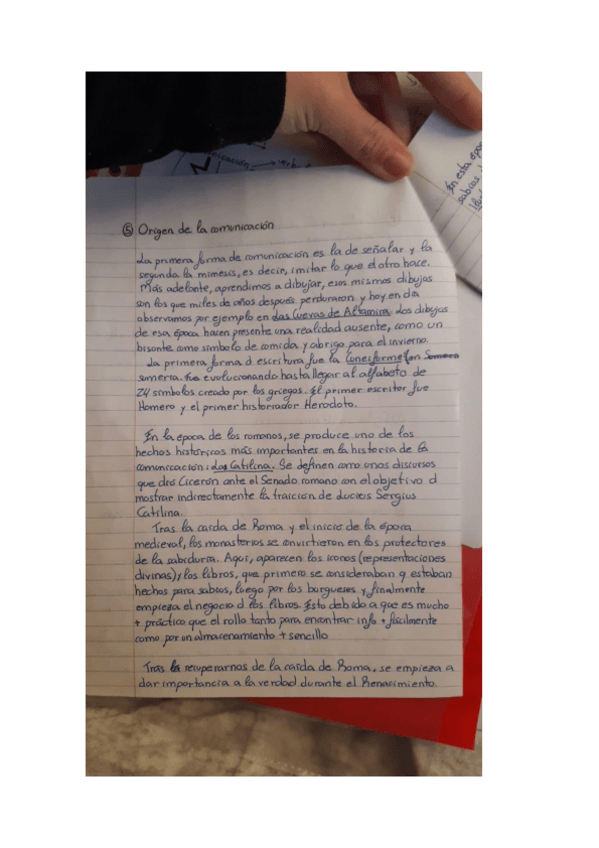 ⑤ Origen de la comunicación
La primera forma de comunicación es la de señalar y la
segunda la mimesis, es decir, imitar lo que el otro hace.
Más adelante, aprendimos a dibujar, esos mismos dibujos
son los que miles de años después perduraron y hoy en día
observamos por ejemplo en las Cuevas de Altamira. Los dibujos
de esa época hacen presente una realidad ausente, como un
bisonte como símbolo de comida y abrigo para el invierno.
La primera forma d escritura fue la Coneiforme en
Sumeria. fue evolucionando hasta llegar al alfabeto de
24 símbolos creado por los griegos. El primer escritor fue
Homero y el primer historiador Herodoto.
En la época de los romanos, se produce uno de los
hechos históricos más importantes en la historia de la
comunicación: Las Catilina. Se definen como unos discursos
que dió Cicerón ante el Senado romano con el objetivo d
mostrar indirectamente la traición de Lucius Sergius
Catilina.
Tras la caída de Roma y el inicio de la época
medieval, los monasterios se convirtieron en los protectores
de la sabiduría. Aquí, aparecen los iconos (representaciones
divinas) y los libros, que primero se consideraban q estaban
hechos para sabios, luego por los burgueses y finalmente
empieza el negocio d los libros. Esto debido a que es mucho
+ práctico que el rollo tanto para encontrar info + fácilmente
como por un almacenamiento + sencillo
Tras la recuperarnos de la caída de Roma, se empieza a
dar importancia a la verdad durante el Renacimiento.
En esta épo